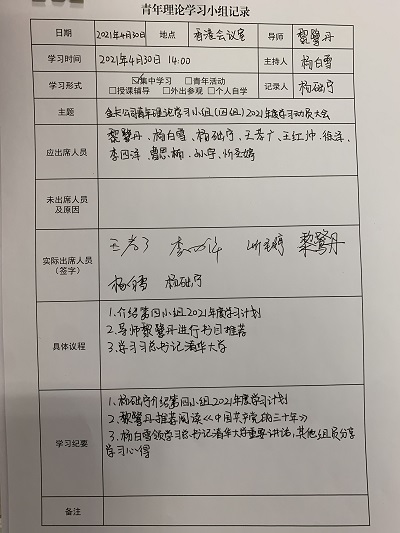 青年理论学习小组记录
日期 2021年4月30日 地点 香港会议室 导师 黎鹭丹
学习时间 2021年4月30日 14:00 主持人 杨白雪
学习形式 ☑集中学习 □青年活动
□授课辅导 □外出参观 □个人自学 记录人 杨础宁
主题 公司青年理论学习小组(四组)2021年度学习动员大会
应出席人员 黎鹭丹、杨白雪、杨础宁、王芳广、王红帅、
未出席人员
及原因
实际出席人员
(签字) 黎鹭丹
杨白雪 杨础宁
具体议程 1.介绍第四小组2021年度学习计划
2.导师黎鹭丹进行书目推荐
3.学习习总书记清华大学
学习纪要 1.杨础宁介绍第四小组2021年度学习计划
2.黎鹭丹推荐阅读《中国共产党的三十年》
3.杨白雪领学习总书记清华大学重要讲话,其他组员分享
学习心得
备注